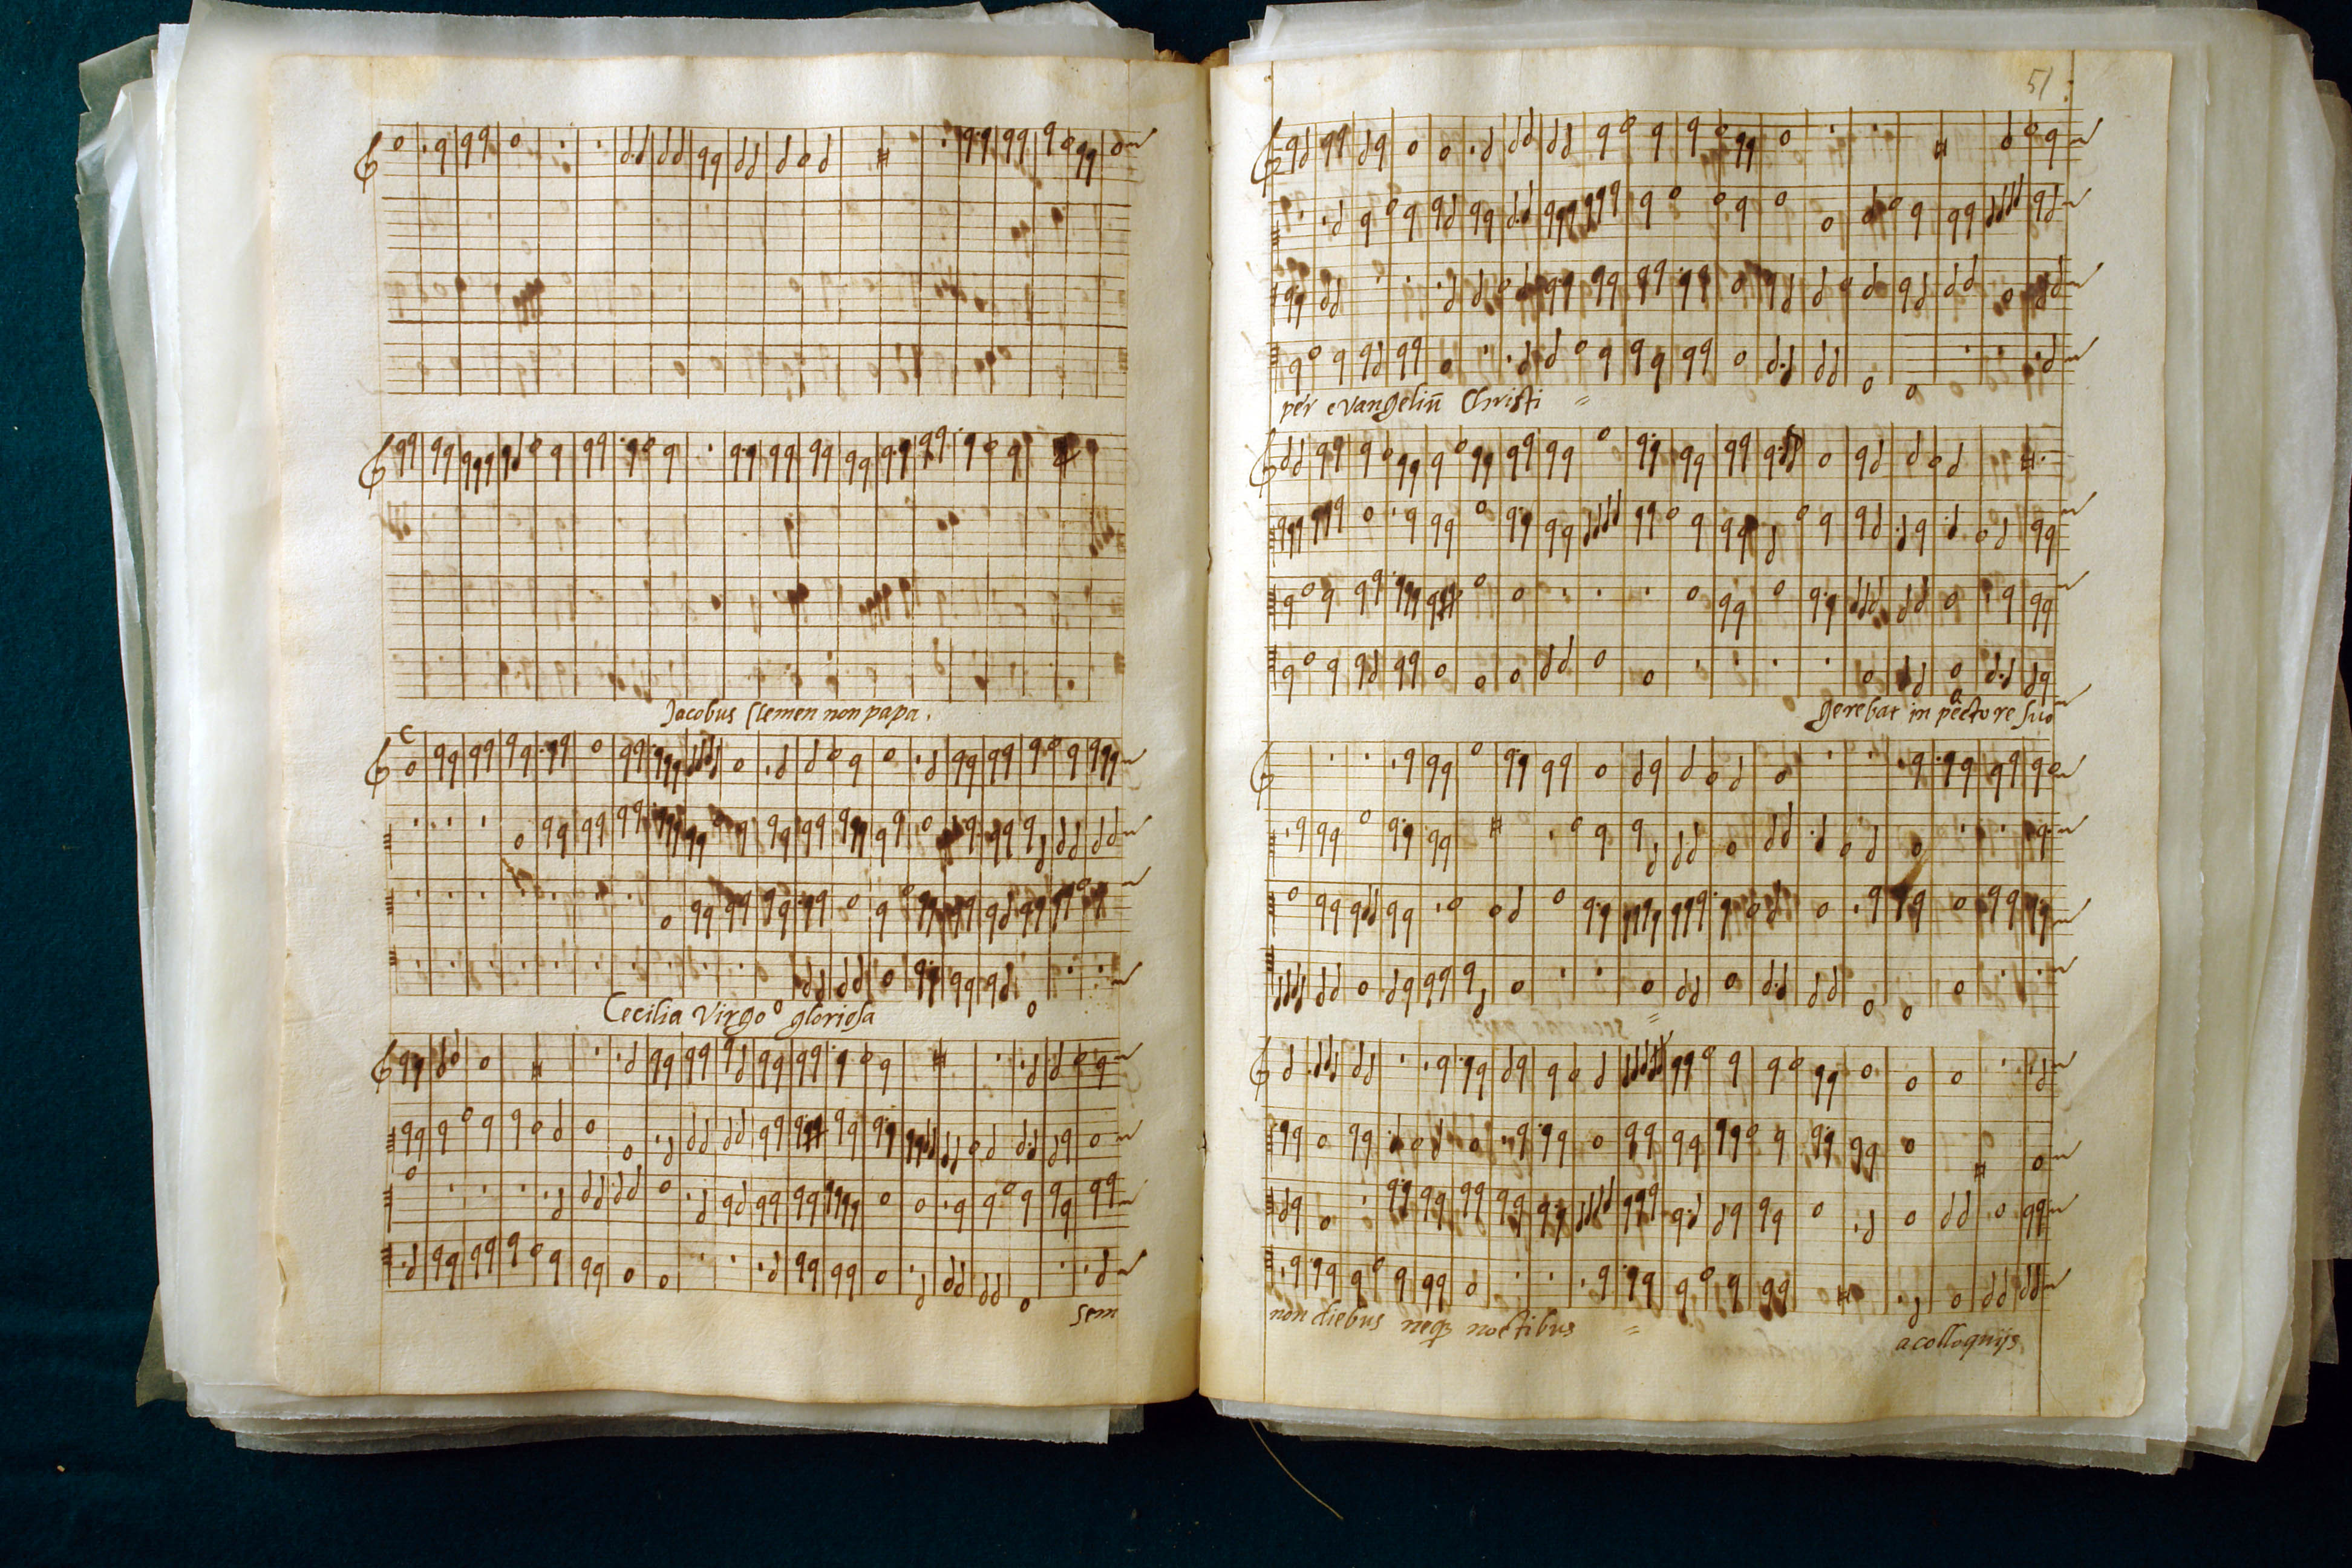 Jacobus Clemen non papa.
Cecilia Virgo gloriosa
sem
51
per evangeliũ Christi =
gerebat in pectore suo
=
non diebus neqꝫ noctibus = a colloquijs